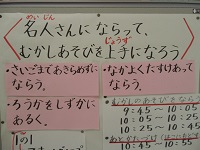 めいじん
名人さんにならって、
じょうず
むかしあそびを上手になろう
・さいごまであきらめずに
ならう。
・ろうかをしずかに
あるく。
・なかよくたすけあって
ならう。
むかしのあそびをならう
9:45〜10:05
10:05〜10:25
10:25〜10:45
10:45〜10:55
1の1